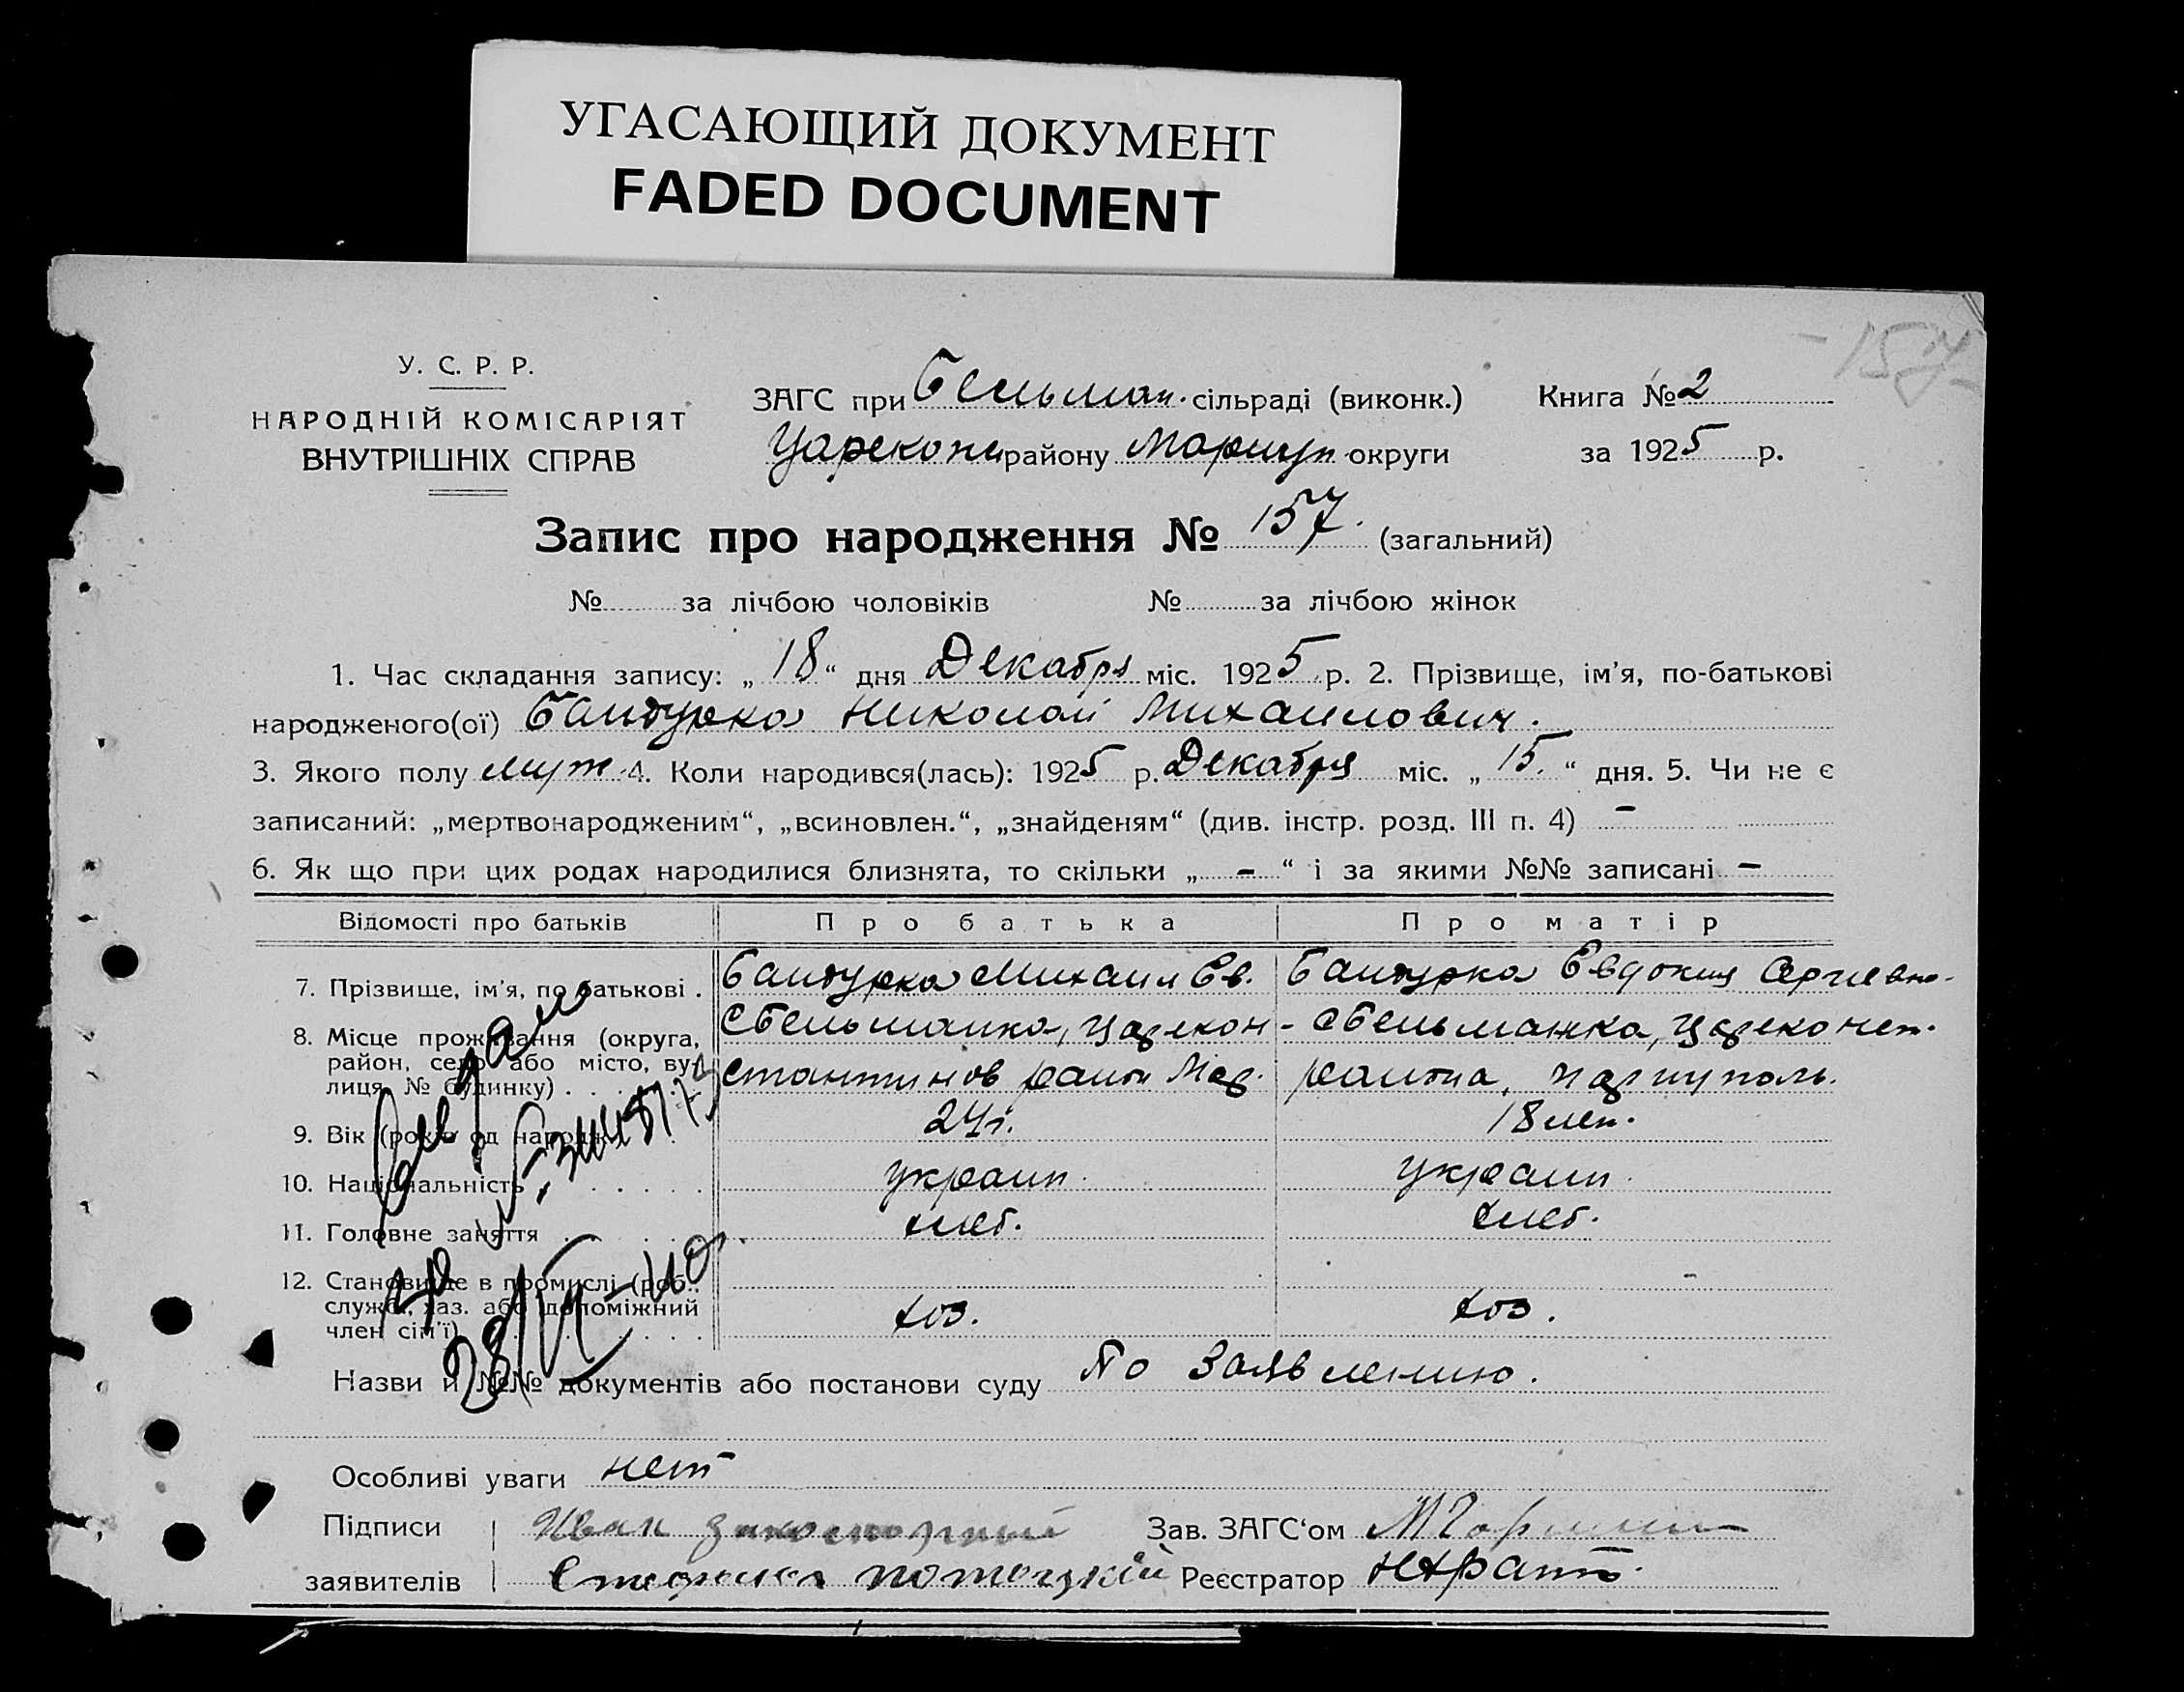 УГАСАЮЩИЙ ДОКУМЕНТ
FADED DOCUMENT
-157-
У. С. Р. Р.
НАРОДНІЙ КОМІСАРІЯТ
ВНУТРІШНІХ СПРАВ
ЗАГС при Бельман. сільраді (виконк.) Книга № 2
Царекон районy Мариуп округи за 1925 р.
Запис про народження № 157. (загальний)
№ за лічбою чоловіків № за лічбою жінок
1. Час складання запису: „18“ дня Декабря міс. 1925 р. 2. Прізвище, ім'я, по-батькові
народженого(ої) Бандурка Николай Михайлович.
3. Якого полу муж 4. Коли народився(лась): 1925 р. Декабря міс. „15.“ дня. 5. Чи не є
записаний: „мертвонародженим“, „всиновлен.“, „знайденям“ (див. інстр. розд. III п. 4) –
6. Як що при цих родах народилися близнята, то скільки „–“ і за якими №№ записані –
Відомості про батьків Про батька Про матір
7. Прізвище, ім'я, по батькові . Бандурка Михаил Ев. Бандурка Евдокия
8. Місце проживання (округа, с Бельманка, Царекон- с Бельманка, Царекон
район, село або місто, ву- стантинов район Мар.
лиця, № будинку) . района, Мариуполь.
9. Вік (років од народж.) 24г. 18 лет.
10. Національність украин. украин.
11. Головне заняття хлеб. хлеб.
12. Становище в промислі (роб.,
служб., хаз. або допоміжний хоз. хоз.
член сім'ї)
Назви й №№ документів або постанови суду По Заявлению.
Особливі уваги нет
Підписи Иван Зав. ЗАГС'ом
заявителів Реєстратор